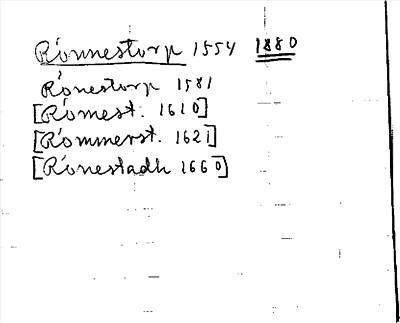 Rönnestorp 1554 1880
Rönestorp 1581
[Römest. 1610]
[Römmerst. 1621]
[Rönestadh 1660]